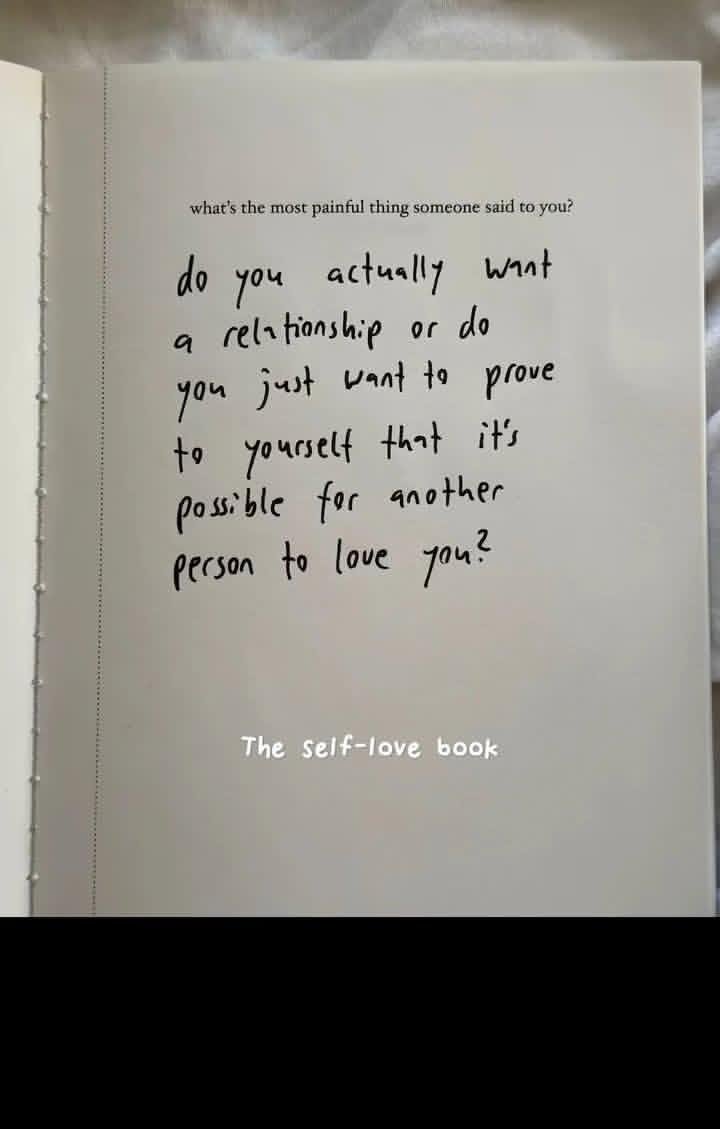 what's the most painful thing someone said to you?
do you actually want
a relationship or do
you just want to prove
to yourself that it's
possible for another
person to love you?
The self-love book